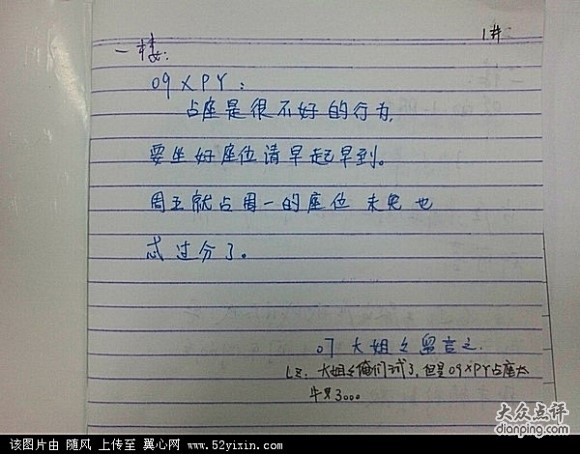 1#
一楼:
09XPY:
占座是很不好的行为,
要坐好座位请早起早到。
周五就占周一的座位 未免也
忒过分了。
07大姐之留言之.
LZ: 大姐之俺们
了,但是09XPY占座太
牛叉3。。。
大众点评
dianping.com
该图片由 随风 上传至 翼心网 www.52yixin.com